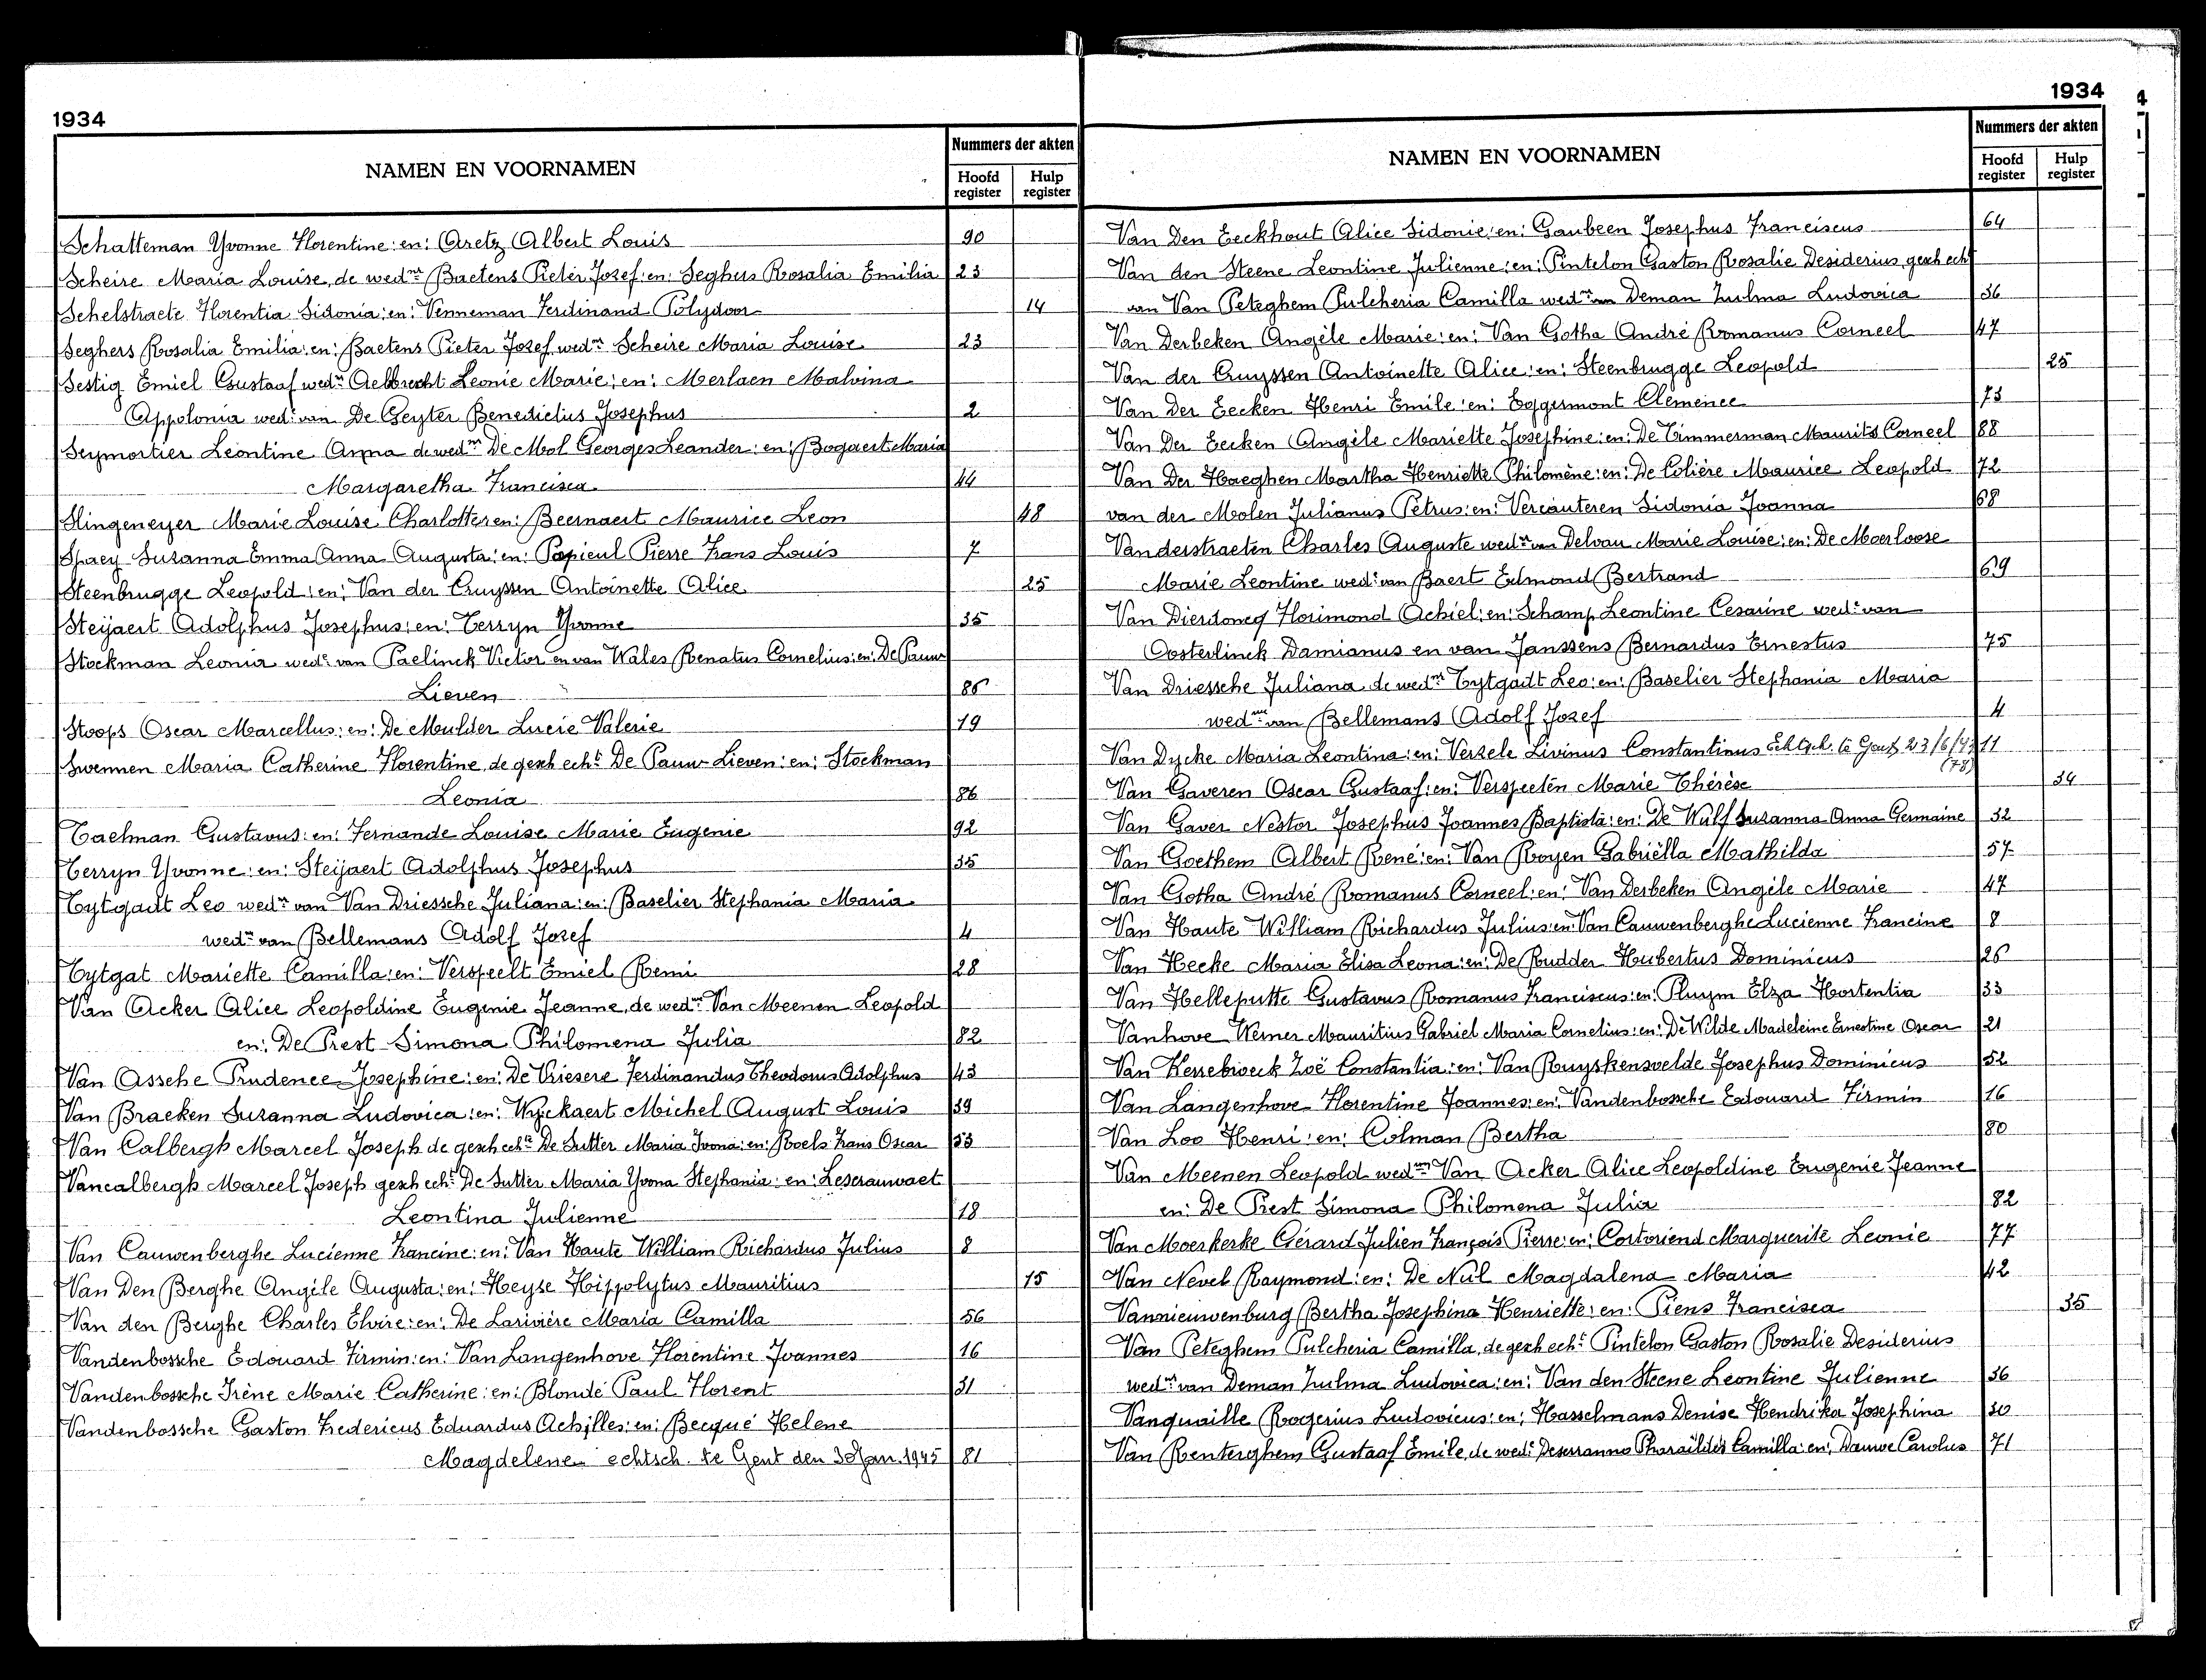 1934
NAMEN EN VOORNAMEN
Nummers der akten
Hoofd register
Hulp register
Schatteman Yvonne Florentine: en: Aretz Albert Louis 90
Scheire Maria Louise, de wednr Baetens Pieter Jozef: en: Seghers Rosalia Emilia 23
Schelstraete Florentia Sidonia: en: Venneman Ferdinand Polydoor 14
Seghers Rosalia Emilia: en: Baetens Pieter Jozef wednr Scheire Maria Louise 23
Sestig Emiel Gustaaf wednr Aelbrecht Leonie Marie: en: Merlaen Malvina
Appolonia wede van De Geyter Benedictus Josephus 2
Seymortier Leontine Anna de wednr De Mol Georges Leander: en: Bogaert Maria
Margaretha Francisca 44
Slingeneyer Marie Louise Charlotte: en: Beernaert Maurice Leon 48
Spaey Suzanna Emma Anna Augusta: en: Papieul Pierre Frans Louis 7
Steenbrugge Leopold: en: Van der Cruyssen Antoinette Alice 25
Steijaert Adolphus Josephus: en: Terryn Yvonne 35
Stockman Leonia wede van Paelinck Victor en van Wales Renatus Cornelius: en: De Pauw
Lieven 86
Stoops Oscar Marcellus: en: De Meulder Lucie Valerie 19
Swennen Maria Catherine Florentine, de gesch echt De Pauw Lieven: en: Stockman
Leonia 86
Taelman Gustavus: en: Fernande Louise Marie Eugenie 92
Terryn Yvonne: en: Steijaert Adolphus Josephus 35
Tytgadt Leo wednr van Van Driessche Juliana: en: Baselier Stephania Maria
wede van Bellemans Adolf Jozef 4
Tytgat Mariette Camilla: en: Verspeelt Emiel Remi 28
Van Acker Alice Leopoldine Eugenie Jeanne, de wednr Van Meenen Leopold
en: De Prest Simona Philomena Julia 82
Van Assche Prudence Josephine: en: De Vriesere Ferdinandus Theodorus Adolphus 43
Van Braeken Suzanna Ludovica: en: Wyckaert Michel August Louis 39
Van Calbergh Marcel Joseph de gesch echte De Sutter Maria Ivona: en: Roels Frans Oscar 53
Vancalbergh Marcel Joseph gesch echt De Sutter Maria Yvona Stephania: en: Leserauwaet
Leontina Julienne 18
Van Cauwenberghe Lucienne Francine: en: Van Haute William Richardus Julius 8
Van Den Berghe Angèle Augusta: en: Heyse Hippolytus Mauritius 15
Van den Berghe Charles Elvire: en: De Larivière Maria Camilla 56
Vandenbossche Edouard Firmin: en: Van Langenhove Florentine Joannes 16
Vandenbossche Irène Marie Catherine: en: Blondé Paul Florent 31
Vandenbossche Gaston Fredericus Eduardus Achilles: en: Becqué Helene
Magdelene echtsch. te Gent den 30 Jan. 1945 81
1934
NAMEN EN VOORNAMEN
Nummers der akten
Hoofd register
Hulp register
Van Den Eeckhout Alice Sidonie: en: Gaubeen Josephus Franciscus 64
Van den Steene Leontine Julienne: en: Pintelon Gaston Rosalie Desiderius, gesch echt
van Van Peteghem Pulcheria Camilla wednr van Deman Zulma Ludovica 36
Van Derbeken Angèle Marie: en: Van Gotha André Romanus Corneel 47
Van der Cruyssen Antoinette Alice: en: Steenbrugge Leopold 25
Van Der Eecken Henri Emile: en: Eggermont Clemence 73
Van Der Eecken Angèle Mariette Josephine: en: De Timmerman Maurits Corneel 88
Van Der Haeghen Martha Henriette Philomène: en: De Colière Maurice Leopold 72
van der Molen Julianus Petrus: en: Vercauteren Sidonia Joanna 68
Vanderstraeten Charles Auguste wednr van Delvau Marie Louise: en: De Moerloose
Marie Leontine wede van Baert Edmond Bertrand 69
Van Dierdoncq Florimond Achiel: en: Schamp Leontine Cesarine wede van
Oosterlinck Damianus en van Janssens Bernardus Ernestus 75
Van Driessche Juliana de wednr Tytgadt Leo: en: Baselier Stephania Maria
wedwe van Bellemans Adolf Jozef 4
Van Dycke Maria Leontina: en: Verzele Livinus Constantinus Echtsch. te Gent 23/6/47 11
(78)
Van Gaveren Oscar Gustaaf: en: Verspeeten Marie Thérèse 34
Van Gaver Nestor Josephus Joannes Baptista: en: De Wulf Suzanna Anna Germaine 32
Van Goethem Albert René: en: Van Royen Gabriëlla Mathilda 57
Van Gotha André Romanus Corneel: en: Van Derbeken Angèle Marie 47
Van Haute William Richardus Julius: en: Van Cauwenberghe Lucienne Francine 8
Van Hecke Maria Elisa Leona: en: De Rudder Hubertus Dominicus 26
Van Helleputte Gustavus Romanus Franciscus: en: Pluym Elza Hortentia 33
Vanhove Werner Mauritius Gabriel Maria Cornelius: en: De Wilde Madeleine Ernestine Oscar 21
Van Kerrebroeck Zoë Constantia: en: Van Ruyskensvelde Josephus Dominicus 52
Van Langenhove Florentine Joannes: en: Vandenbossche Edouard Firmin 16
Van Loo Henri: en: Colman Bertha 80
Van Meenen Leopold wednr Van Acker Alice Leopoldine Eugenie Jeanne
en: De Prest Simona Philomena Julia 82
Van Moerkerke Gérard Julien François Pierre: en: Cortoriend Marguerite Leonie 77
Van Nevel Raymond: en: De Nul Magdalena Maria 42
Vannieuwenburg Bertha Josephina Henriette: en: Piens Francisca 35
Van Peteghem Pulcheria Camilla, de gesch echt Pintelon Gaston Rosalie Desiderius
wednr van Deman Zulma Ludovica: en: Van den Steene Leontine Julienne 36
Vanquaille Rogerius Ludovicus: en: Hasselmans Denise Hendrika Josephina 30
Van Renterghem Gustaaf Emile, de wede Deserranno Pharaïldes Camilla: en: Dauwe Carolus 71